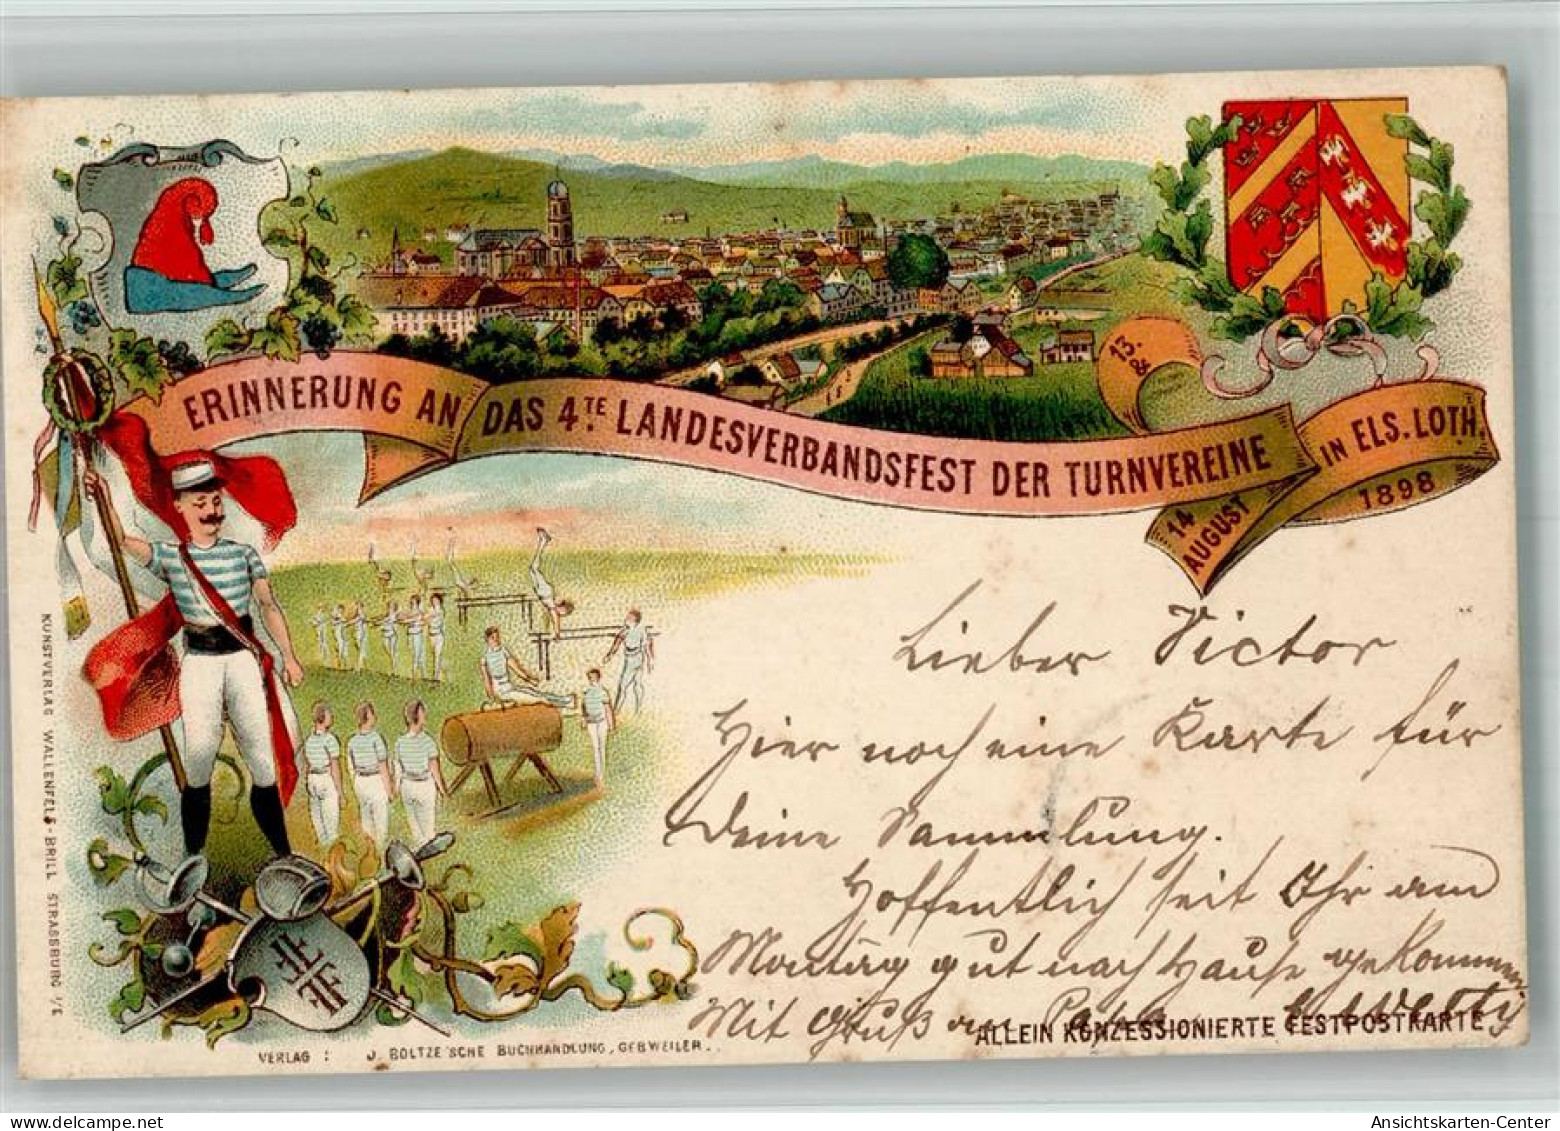 ERINNERUNG AN DAS 4TE. LANDESVERBANDSFEST DER TURNVEREINE IN ELS. LOTH.
13. & 14 AUGUST 1898
Lieber Victor
Hier noch eine Karte für
Deine Sammlung.
Hoffentlich seit Ihr am
Montag gut nach Hause gekommen
Mit Gruß an Papa
ALLEIN KONZESSIONIERTE FESTPOSTKARTE
KUNSTVERLAG WALLENFELS-BRILL STRASSBURG I/E
VERLAG : J. BOLTZE'SCHE BUCHHANDLUNG, GEBWEILER.
Ansichtskarten-Center